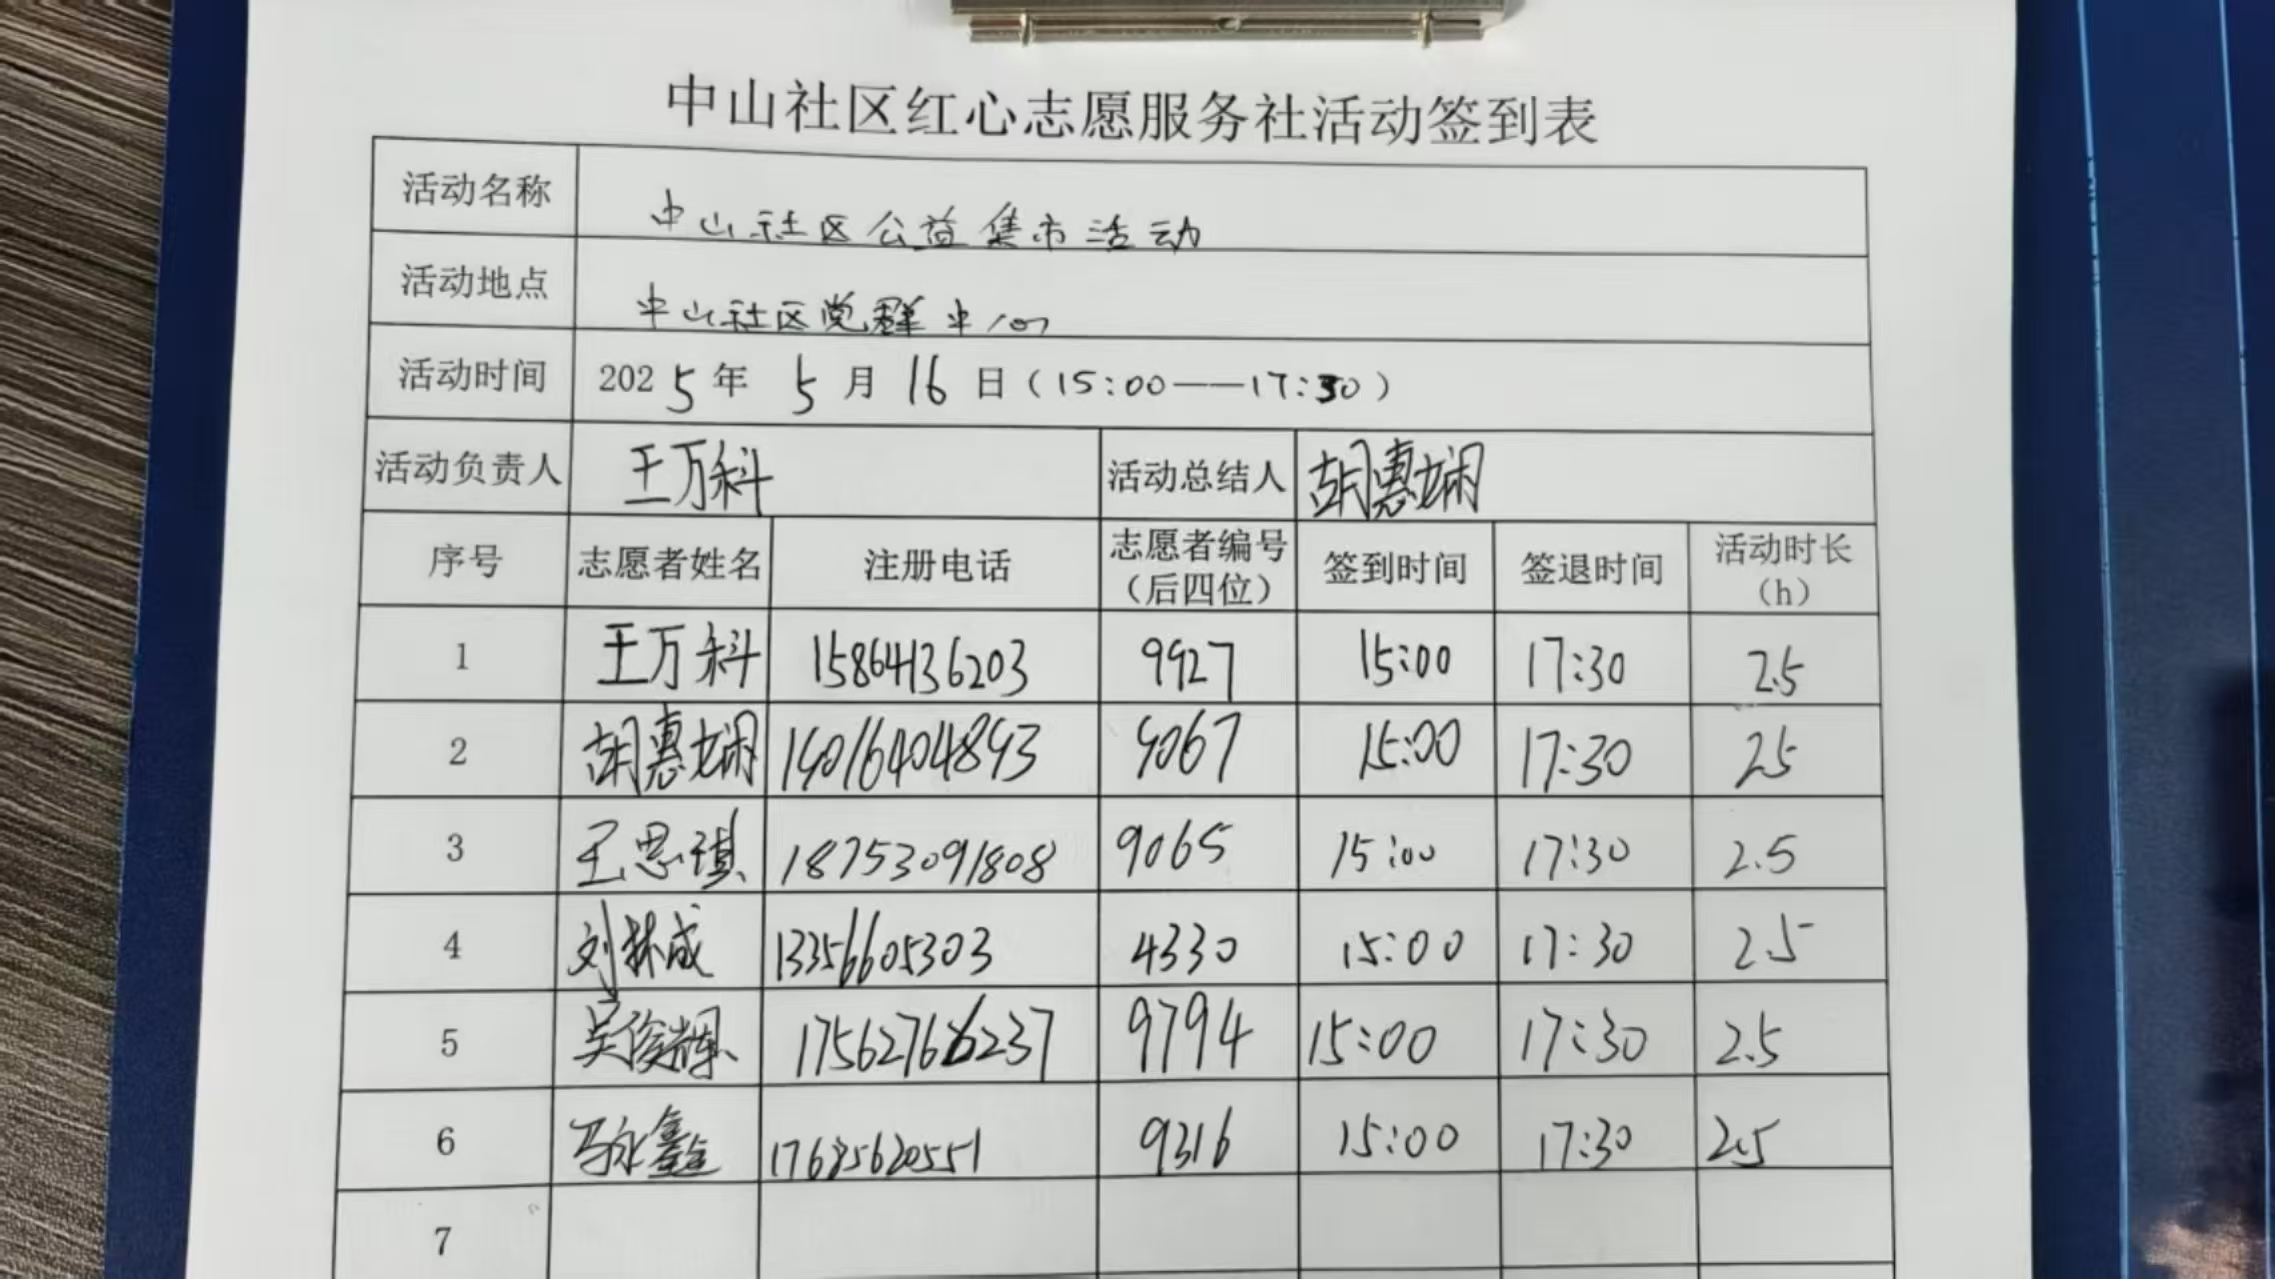 中山社区红心志愿服务社活动签到表
活动名称 中山社区公益集市活动
活动地点 中山社区党群中心
活动时间 2025年 5月 16日(15:00——17:30)
活动负责人 王万科 活动总结人 胡惠娴
序号 志愿者姓名 注册电话 志愿者编号(后四位) 签到时间 签退时间 活动时长(h)
1 王万科 15864136203 9927 15:00 17:30 2.5
2 胡惠娴 9067 15:00 17:30 2.5
3 王思琪 18753091808 9065 15:00 17:30 2.5
4 刘林成 13356605303 4330 15:00 17:30 2.5
5 吴俊 9794 15:00 17:30 2.5
6 马永鑫 9316 15:00 17:30 2.5
7